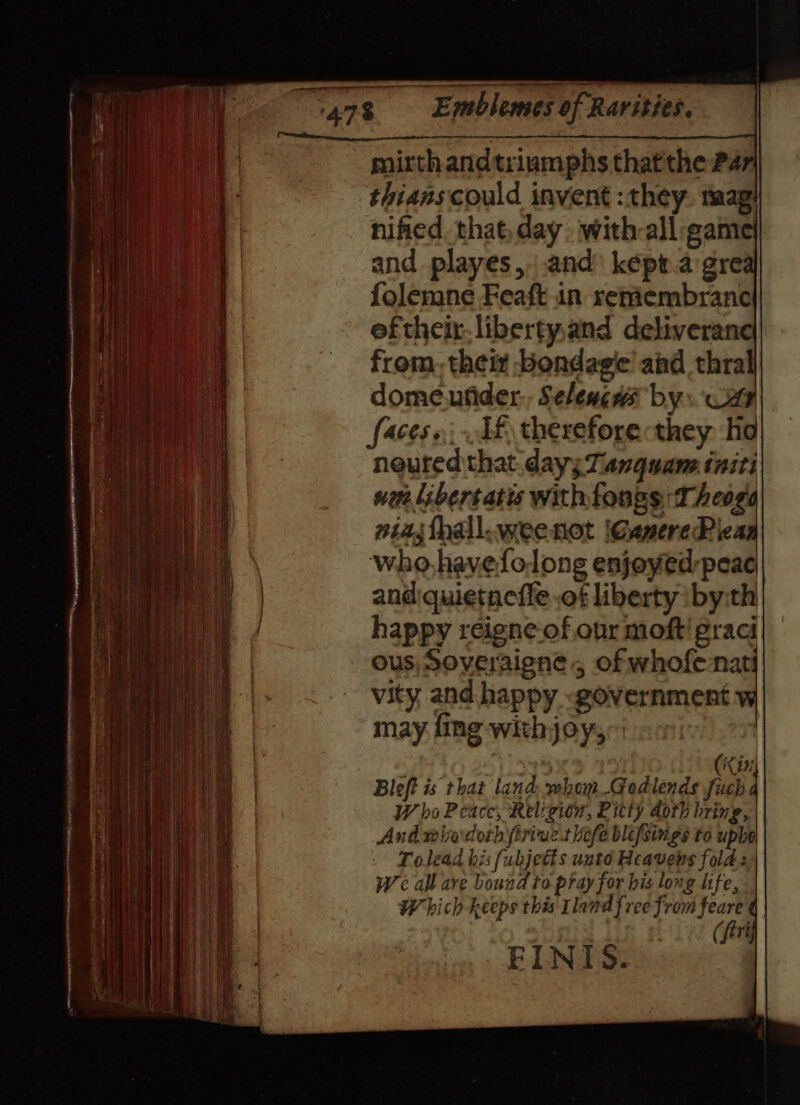 478 Emblemes of Rarities.
mirth and triumphs that the Par
thians could invent : they mag
nified that day with all game
and playes, and kept a grea
ſolemne Feaſt in remembranc
of their liberty and deliveranc
from their bondage and thral
dome under Seleucus by Ar
ſaces. If therefore they ho
noured that day; Tanquam initi
um libertatis with ſongs Theoga
niaz ſhall wee not Canere Piean
who have ſo long enjoyed peac
and quietneſſe of liberty by th
happy reigne of our moſt graci
ous Soveraigne, of whoſe nati
vity and happy government w
may ſing with joy,
(Kin
Bleſt is that land whom God lends ſuch a
Who Peace, Religion, Pitty doth bring,
And who doth ſtrive theſe bleſsings to upho
To lead his ſubjects unto Heavens fold :
We all are bound to pray for his long life,
Which keeps this Iland free from feare
(ſtri
FINIS.